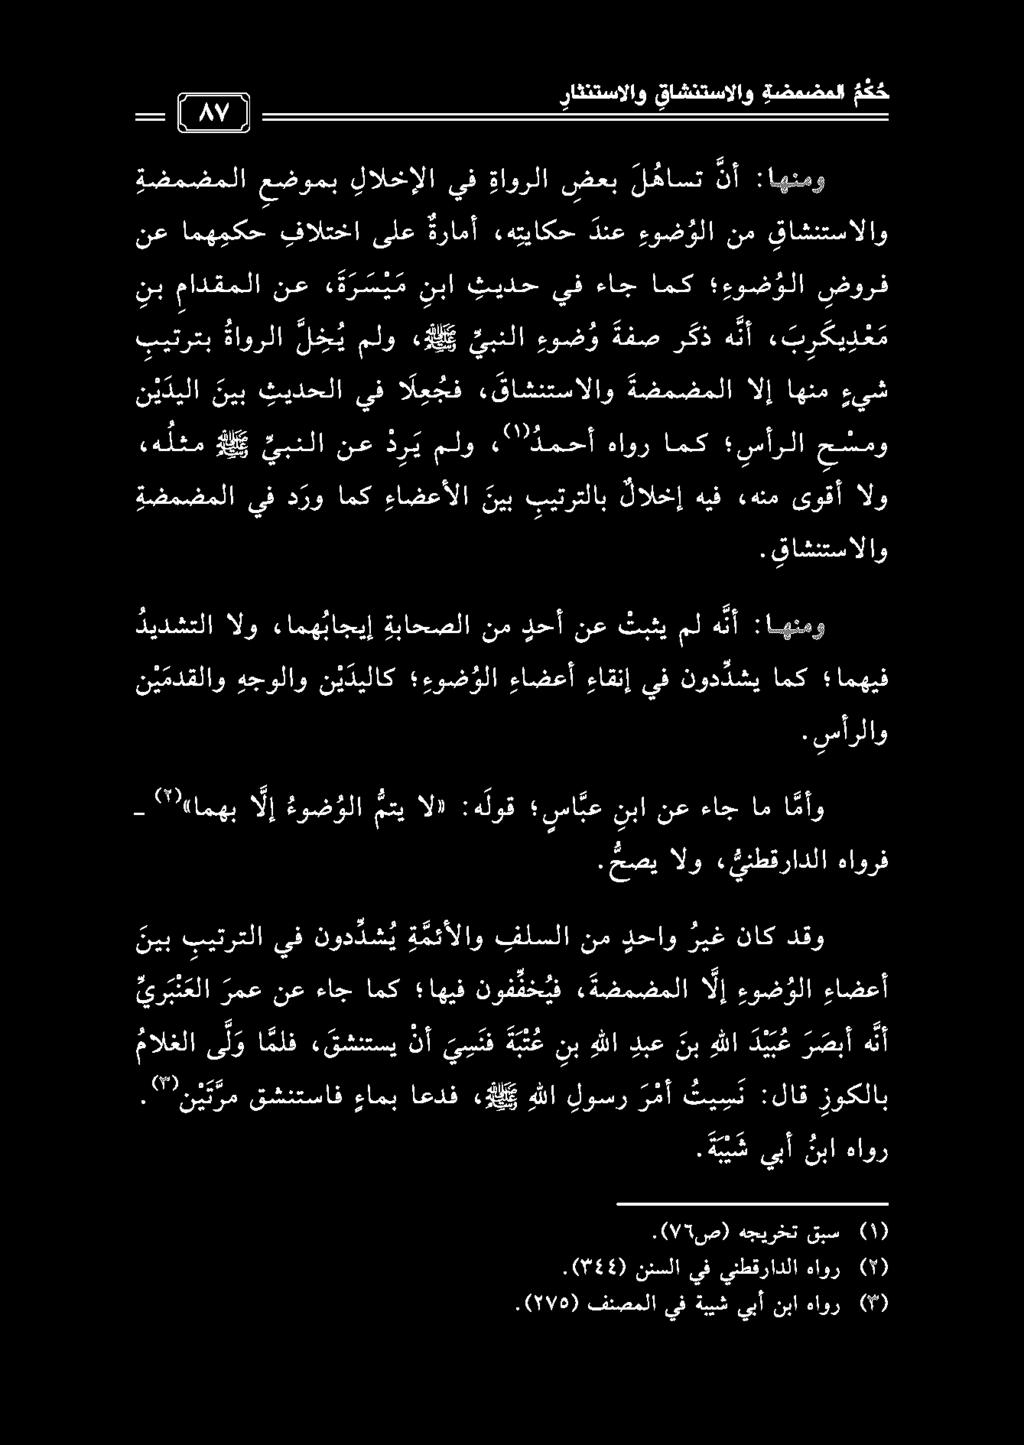 حُكْمُ المضمضةِ والاستنشاقِ والاستنثارِ
٨٧
ومنهـا: أنَّ تساهُلَ بعضِ الرواةِ في الإخلالِ بموضعِ المضمضةِ
والاستنشاقِ من الوُضوءِ عندَ حكايتِه، أمارةٌ على اختلافِ حكمِهما عن
فروضِ الوُضوءِ؛ كما جاء في حديثِ ابنِ مَيْسَرَةَ، عن المقدامِ بنِ
مَعْدِيكَرِبَ، أنَّه ذكَر صفةَ وُضوءِ النبيِّ ﷺ، ولم يُخِلَّ الرواةُ بترتيبِ
شيءٍ منها إلا المضمضةَ والاستنشاقَ، فجُعِلَا في الحديثِ بينَ اليدَيْن
ومسْحِ الرأسِ؛ كما رواه أحمدُ(١)، ولم يَرِدْ عن النبيِّ ﷺ مثلُه،
ولا أقوى منه، فيه إخلالٌ بالترتيبِ بينَ الأعضاءِ كما ورَد في المضمضةِ
والاستنشاقِ.
ومنهـا: أنَّه لم يثبتْ عن أحدٍ من الصحابةِ إيجابُهما، ولا التشديدُ
فيهما؛ كما يشدِّدون في إنقاءِ أعضاءِ الوُضوءِ؛ كاليدَيْن والوجهِ والقدمَيْن
والرأسِ.
وأمَّا ما جاء عن ابنِ عبَّاسٍ؛ قولَه: «لا يتمُّ الوُضوءُ إلَّا بهما»(٢) ـ
فرواه الدارقطنيُّ، ولا يصحُّ.
وقد كان غيرُ واحدٍ من السلفِ والأئمَّةِ يُشدِّدون في الترتيبِ بينَ
أعضاءِ الوُضوءِ إلَّا المضمضةَ، فيُخفِّفون فيها؛ كما جاء عن عمرَ العَنْبَريِّ
أنَّه أبصَرَ عُبَيْدَ اللهِ بنَ عبدِ اللهِ بنِ عُتْبَةَ فنَسِيَ أنْ يستنشقَ، فلمَّا وَلَّى الغلامُ
بالكوزِ قال: نَسِيتُ أمْرَ رسولِ اللهِ ﷺ، فدعا بماءٍ فاستنشق مرَّتَيْن(٣).
رواه ابنُ أبي شَيْبَةَ.
(١) سبق تخريجه (ص٧٦).
(٢) رواه الدارقطني في السنن (٣٤٤).
(٣) رواه ابن أبي شيبة في المصنف (٢٧٥).